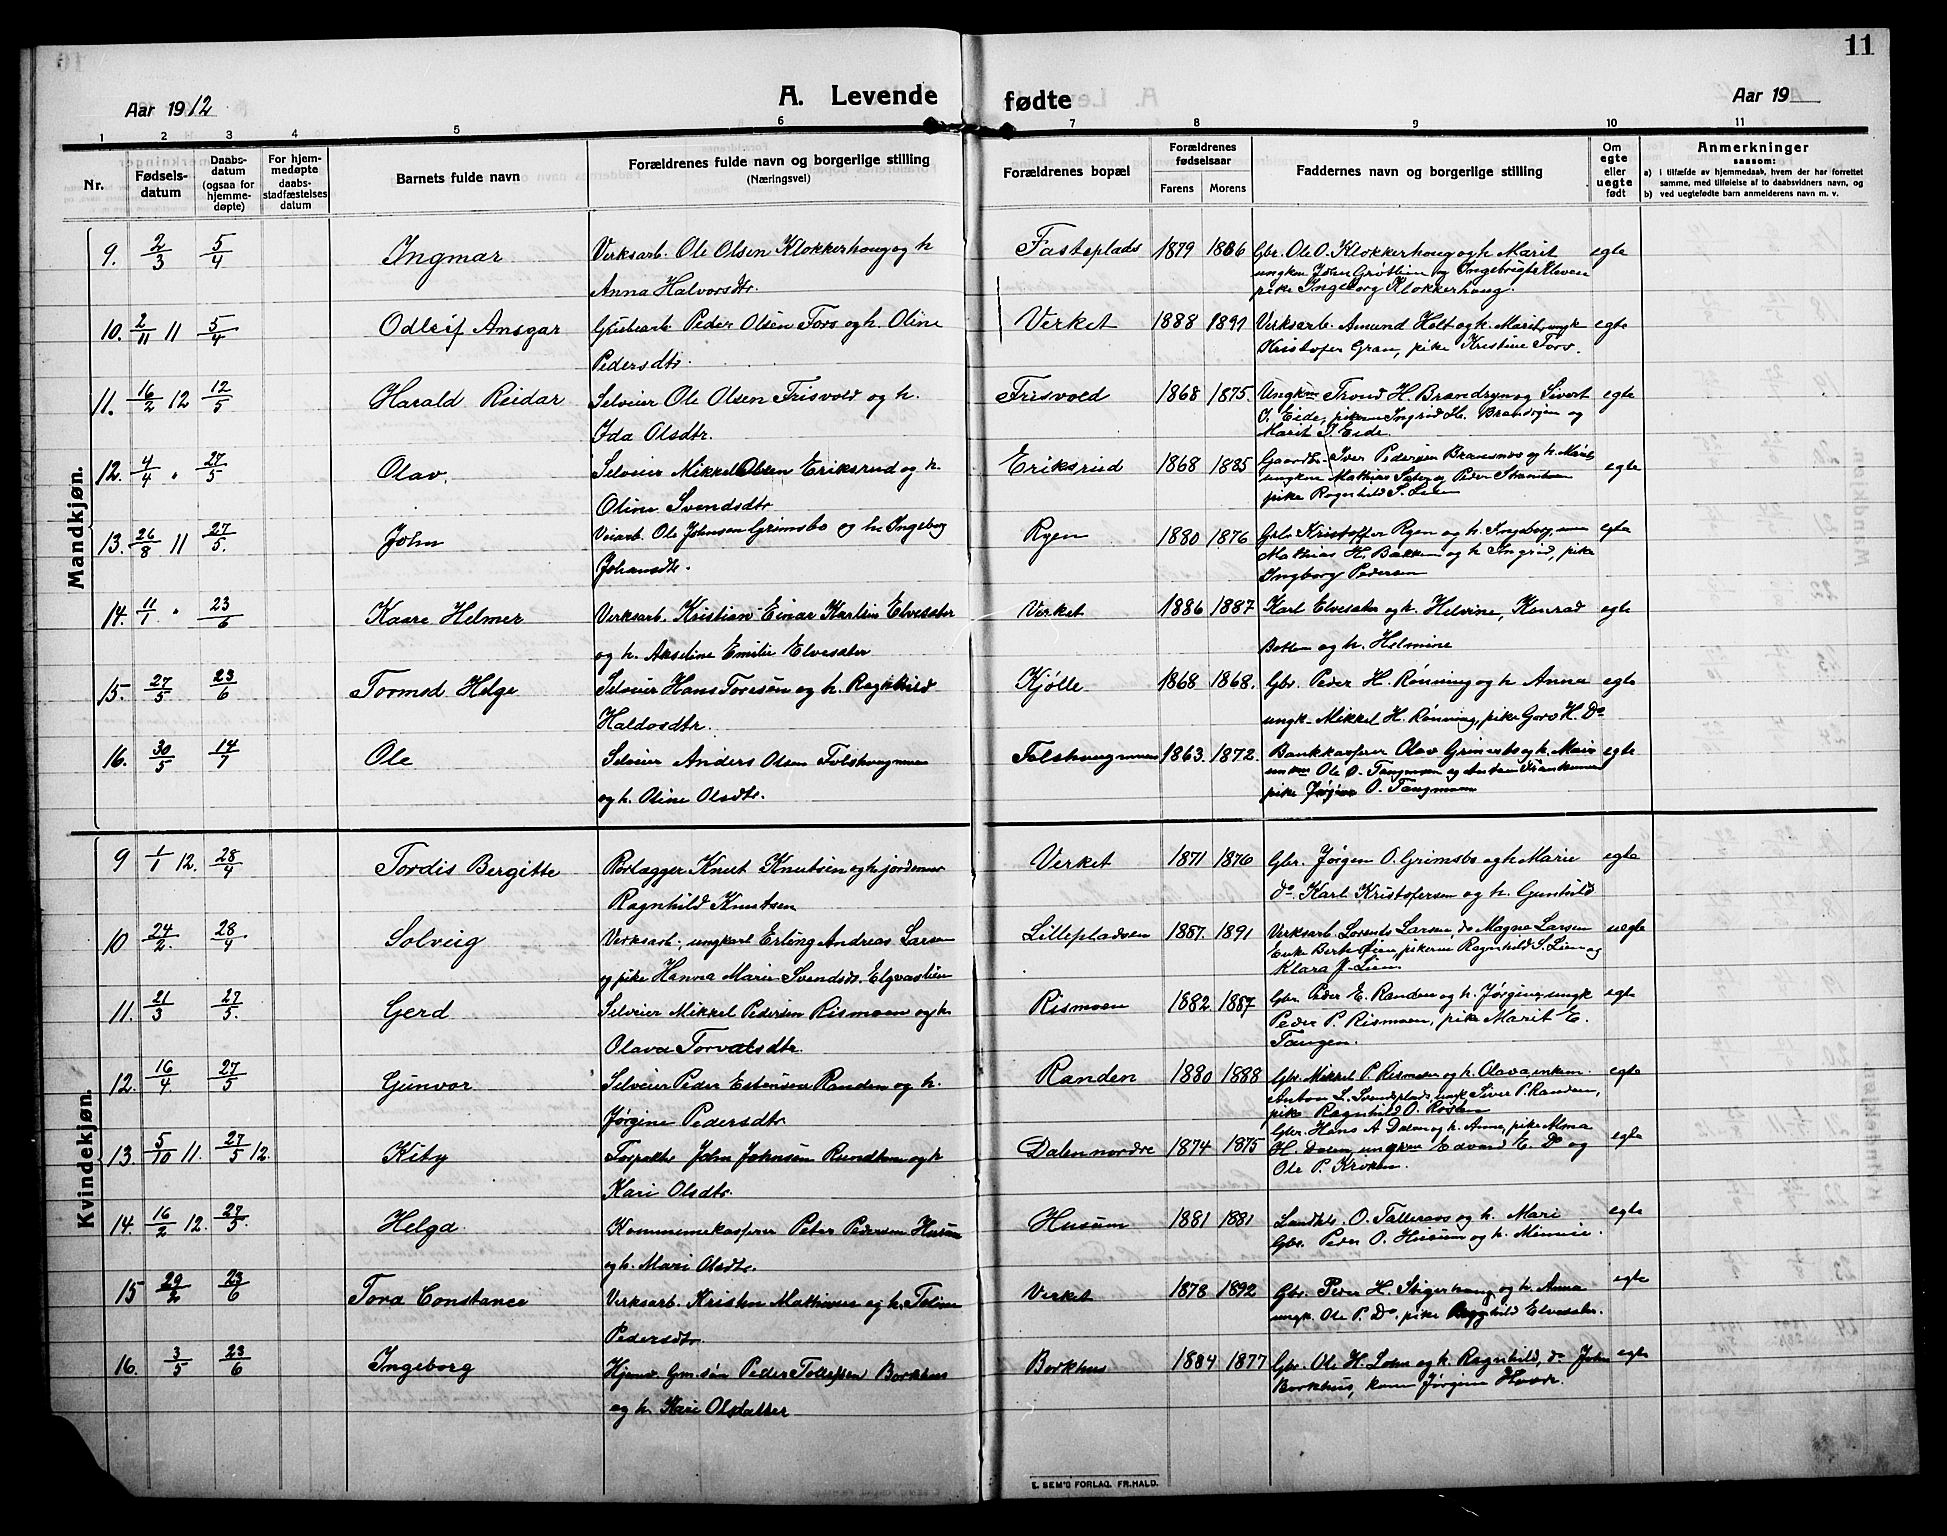 11
Aar 1912
A. Levende fødte
Aar 19
1 2 3 4 5 6 7 8 9 10 11
Nr.
Fødsels-
datum
Daabs-
datum
(ogsaa for
hjemme-
døpte)
For hjem-
medøpte
daabs-
stadfæstelses
datum
Barnets fulde navn
Forældrenes fulde navn og borgerlige stilling
(Næringsvei)
Forældrenes bopæl
Forældrenes
fødselsaar
Farens Morens
Faddernes navn og borgerlige stilling
Om
egte
eller
uegte
født
Anmerkninger
saasom:
a) i tilfælde av hjemmedaab, hvem der har forrettet
samme, med tilføielse af to daabsvidners navn, og
b) ved uegtefødte barn anmelderens navn m. v.
Mandkjøn.
9. 2/3 5/4 Ingmar Verksarb. Ole Olsen Klokkerhaug og h. Fasteplads 1879 1886 Gbr. Ole O. Klokkerhaug og h. Marit egte
Anna Halvorsdtr. ungkm John Grøtlien og Ingebrigt Kleven
pike Ingeborg Klokkerhaug.
10. 2/11 11 5/4 Odleif Ansgar Peder Olsen Fors og h. Oline Verket 1888 1891 Verksarb. Amund Holt og h. Marit, ungk egte
Pedersdtr. Kristofer Gran, pike Kristine Fors.
11. 16/2 12 12/5 Harald Reidar Selveier Ole Olsen Frisvold og h. Frisvold 1868 1875. Ungkm Trond H. Brandryn og Sivert egte
Ida Olsdtr. I. Eide, pikerne Ingrid H. Brandryen og
Marit I. Eide.
12. 4/4 " 27/5 Olav. Selveier Mikkel Olsen Eriksrud og h. Eriksrud 1868 1885 Gaardbr. Iver Pedersen og h. Marit egte
Oline Svendsdtr. ungkm Mathias Sæter og Peder
pike Ragnhild S. Lien
13. 26/8 11 27/5. John Veiarb. Ole Johnsen Grimsbo og h. Ingeborg Ryen 1880 1876 Gbr. Kristoffer Ryen og h. Ingeborg, egte
Johansdtr. Mathias H. Bakken og h. Ingrid, pike
Ingborg Pedersen
14. 11/1 " 23/6 Kaare Helmer Verksarb. Kristian Einar Karlsen Elvesæter Verket 1886 1887 Karl Elvesæter og h. Helvine, Konrad egte
og h. Akseline Emilie Elvesæter Botten og h. Helmine
15. 27/5 23/6 Tormod Helge Selveier Hans Toresen og h. Ragnhild Kjølle 1868 1868. Gbr. Peder H. Rønning og h. Anna egte
Haldosdtr. ungk. Mikkel H. Rønning, pike Goro H. Do
16. 30/5 14/7 Ole Selveier Anders Olsen Folshaugmoen Folshaugmoen 1863. 1872. Bankkasserer Olav Grimsbo og h. Mari egte
og h. Oline Olsdtr. Ole O. Tangmoen og
pike Jørgine O. Tangmoen
Kvindekjøn.
9 1/1 12. 28/4 Tordis Bergitte Rørlægger Knut Knutsen og h. jordemor Verket 1871 1876 Gbr. Jørgen O. Grimsbo og h. Marie egte
Ragnhild Knutsen do Karl Kristofersen og h. Gunhild
10 24/2. 28/4 Solveig Verksarb., ungkarl Erling Andreas Larsen Lillepladsen 1887. 1891 Verksarb Lorents Larsen, do Magne Larsen uegte
og pike Hanna Marie Svendsd. Elgvastien Enke Berthe Lien, pikerne Ragnhild S. Lien og
Klara J. Lien
11. 21/3 27/5. Gerd Selveier Mikkel Pedersen Rismoen og h. Rismoen 1882 1887 Gbr. Peder E. Randen og h. Jørgine, ungk egte
Olava Torvalsdtr. Peder P. Rismoen, pike Marit E.
Tangen.
12. 16/4 27/5 Gunvor Selveier Peder Estensen Randen og h. Randen 1880 1888 Gbr. Mikkel P. Rismoen og h. Olava egte
Jørgine Pedersdtr. Anton L. Svendsplads, ungk Siver P. Randen,
pike Ragnhild O. Rosten
13. 5/10 11. 27/5 12. Kitty Forpakter John Johnsen Rundhom og h Dalen nordre 1874 1875 Gbr. Hans A Dalen og h. Anne, pike Alma egte
Kari Olsdtr. H. Dalen, ungkm Edvard E. Do og
Ole P. Kroken.
14. 16/2 12. 27/5. Helga Kommunekasserer Peter Pedersen Husum Husum 1881 1881 Landh. O. Talleraas og h. Mari egte
og h. Mari Olsdtr. Gbr. Peder O. Husum og h. Minnie.
15 29/2 23/6 Tora Constance Verksarb. Kristen Mathisen og h. Toline Verket 1878 1892 Gbr. Peder H. Stigerhaug og h. Anna egte
Pedersdtr. ungk. Ole P. Do, pike Ragnhild Elvesæter.
16. 3/5 23/6 Ingeborg Peder Tollefsen Borkhus Borkhus 1884 1877 Gbr. Ole H. Lohn og h. Ragnhild, do John egte
og h. Kari Olsdatter Borkhus, kone Jørgine Hovde.
E. SEM'S FORLAG, FR.HALD.